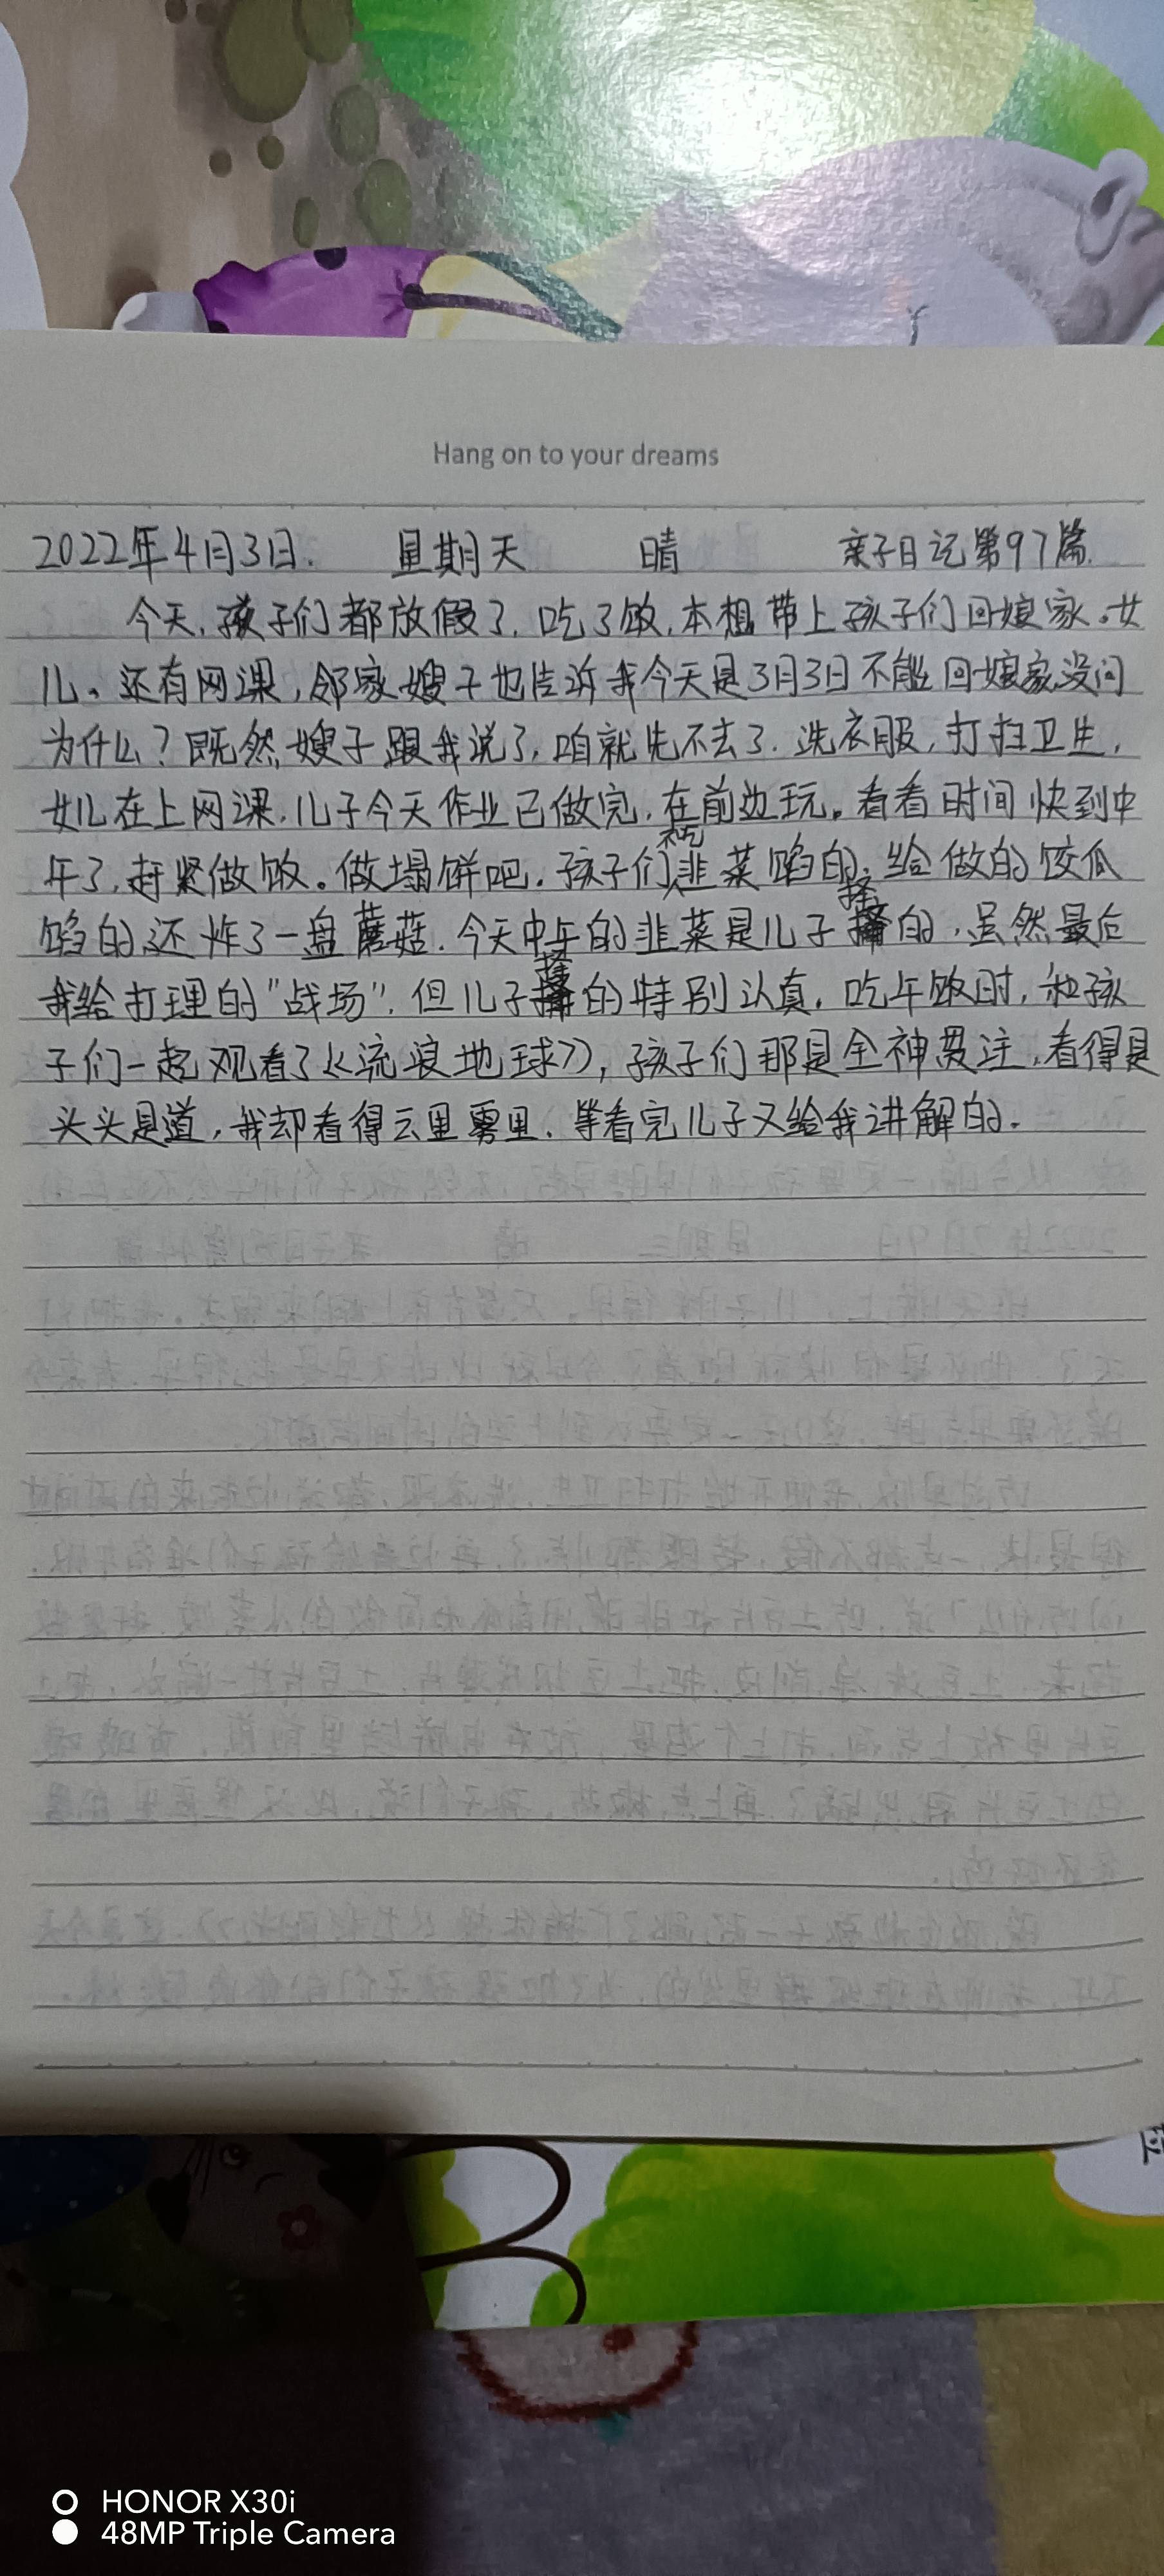 Hang on to your dreams
2022年4月3日. 星期天 晴 亲子日记第97篇.
今天,孩子们都放假了,吃了饭,本想带上孩子们回娘家。女
儿。还有网课,邻家嫂子也告诉我今天是3月3日不能回娘家没问
为什么?既然嫂子跟我说了,咱就先不去了.洗衣服,打扫卫生,
女儿在上网课.儿子今天作业已做完,在前边玩。看看时间快到中
午了,赶紧做饭。做塌饼吧.孩子们不吃韭菜馅的,给做的饺瓜
馅的还炸了一盘蘑菇.今天中午的韭菜是儿子择的,虽然最后
我给打理的"战场",但儿子择的特别认真.吃午饭时,和孩
子们一起观看了《流浪地球》,孩子们那是全神贯注,看得是
头头是道,我却看得云里雾里.等看完儿子又给我讲解的.
HONOR X30i
48MP Triple Camera